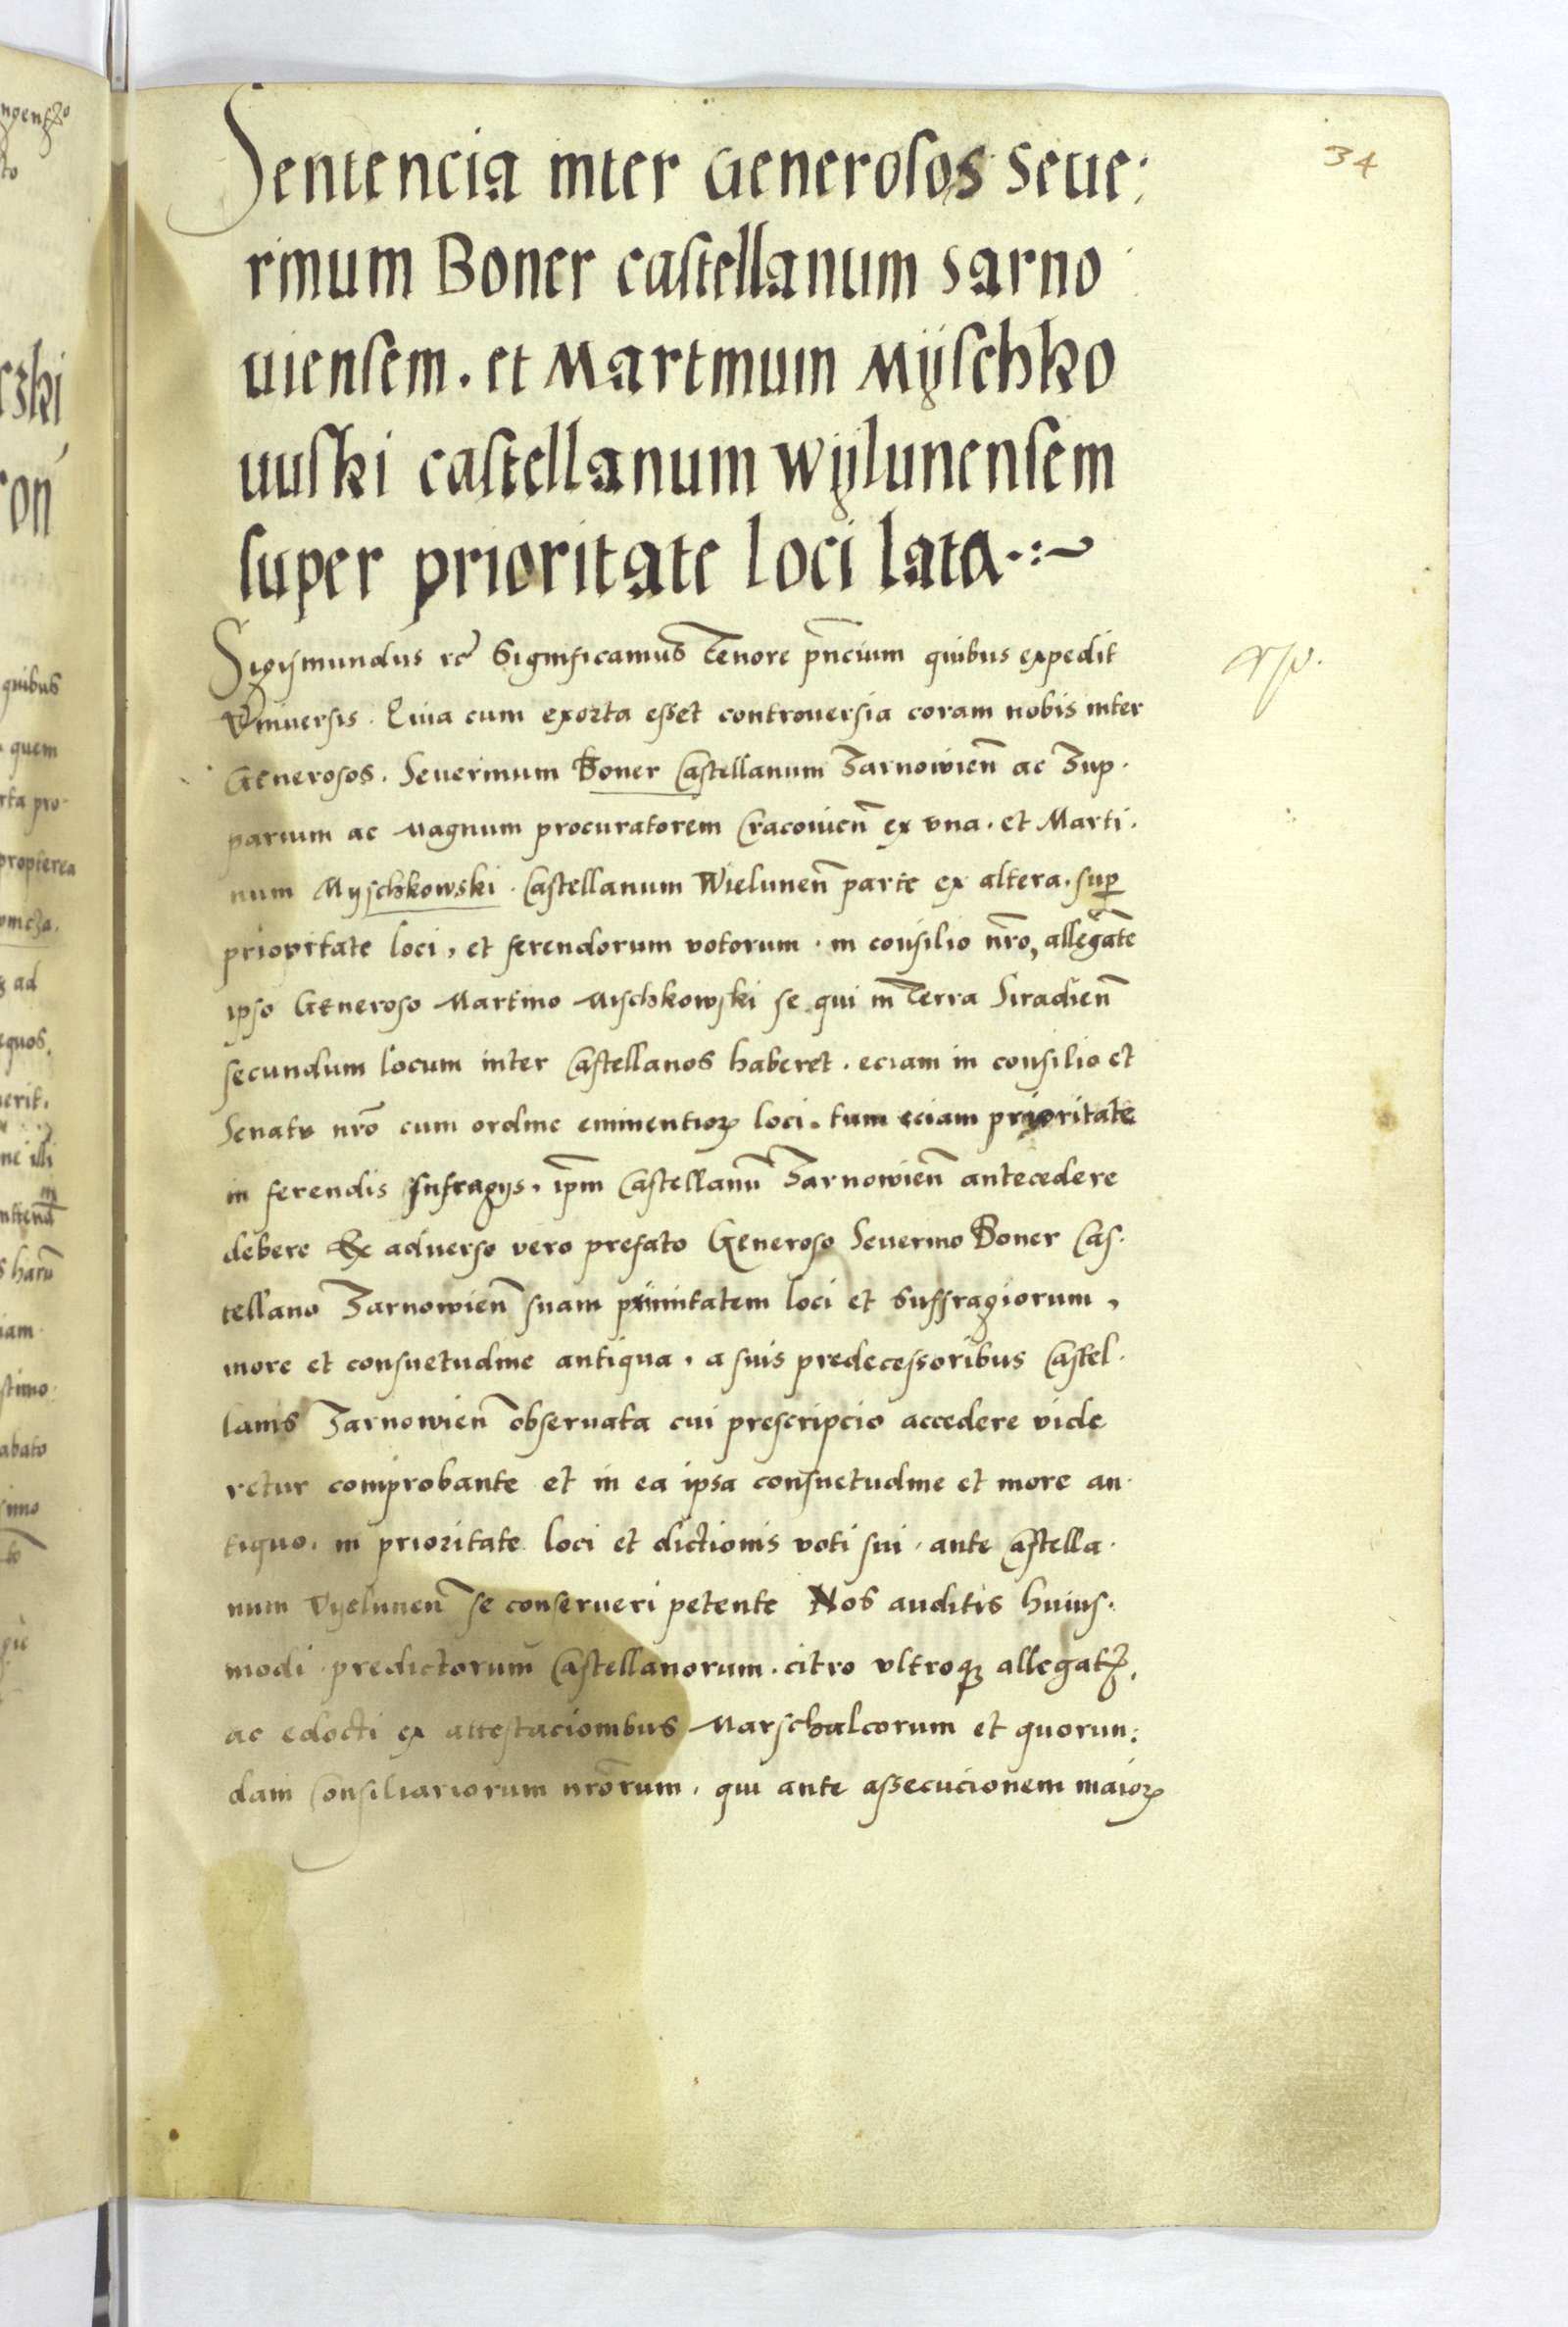 34
Sentencia inter Generosos Seue:
rinum Boner castellanum Sarno
uiensem. et Martinum Mÿschko
uuski castellanum wÿlunensem
super prioritate loci lata
Sigismundus rc̃ Significamus Tenore pñcium quibus expedit
Vniuersis. Quia cum exorta esset controuersia coram nobis inter
Generosos. Seuerinum Boner Castellanum Zarnowieñ ac Zup-
parium ac Magnum procuratorem Cracouieñ ex vna. et Marti-
num Myschkowski. Castellanum Wieluneñ parte ex altera. sup̱
prioritate loci, et ferendorum votorum. in consilio nr̃o, allegãte
ipso Generoso Martino Mischkowski se qui in Terra Siradieñ
secundum locum inter Castellanos haberet. eciam in consilio et
Senatu nr̃o cum ordine eminentioꝝ loci. tum eciam prioritate
in ferendis sufragijs. ip̃m Castellanũ Zarnowieñ antecedere
debere Ex aduerso vero prefato Generoso Seuerino Boner Cas-
tellano Zarnowieñ suam primitatem loci et suffragiorum,
more et consuetudine antiqua, a suis predecessoribus Castel-
lanis Zarnowieñ obseruata cui prescripcio accedere vide
retur comprobante et in ea ipsa consuetudine et more an-
tiquo. in prioritate loci et dictionis voti sui. ante Castella-
num Vyeluneñ se conserueri petente Nos auditis huius-
modi predictorum Castellanorum. citro vltroqꝫ allegatꝭ,
ac edocti ex attestacionibus Marschalcorum et quorun:
dam Consiliariorum nr̃orum. qui ante assecucionem maioꝝ